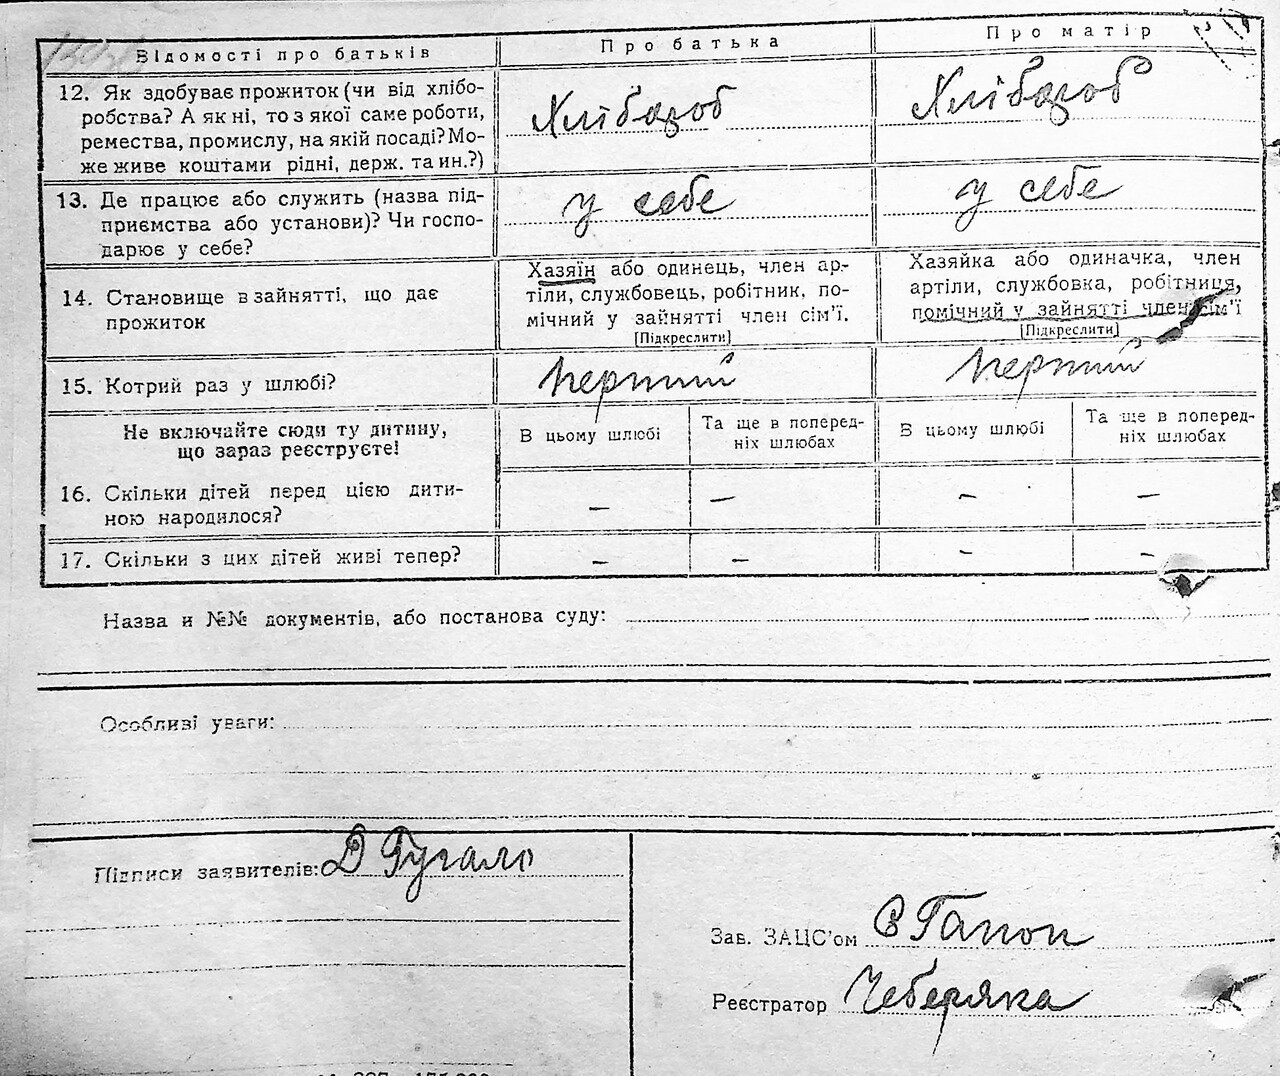 Відомості про батьків
Про батька
Про матір
12. Як здобуває прожиток (чи від хлібо-
робства? А як ні, то з якої саме роботи,
ремества, промислу, на якій посаді? Мо-
же живе коштами рідні, держ. та ин.?)
Хлібороб
Хлібороб
13. Де працює або служить (назва під-
приємства або установи)? Чи госпо-
дарює у себе?
у себе
у себе
14. Становище в зайнятті, що дає
прожиток
Хазяїн або одинець, член ар-
тіли, службовець, робітник, по-
мічний у зайнятті член сім'ї.
[Підкреслити]
Хазяйка або одиначка, член
артіли, службовка, робітниця,
помічний у зайнятті член сім'ї
[Підкреслити]
15. Котрий раз у шлюбі?
перший
перший
Не включайте сюди ту дитину,
що зараз реєструєте!
В цьому шлюбі
Та ще в поперед-
ніх шлюбах
В цьому шлюбі
Та ще в поперед-
ніх шлюбах
16. Скільки дітей перед цією дити-
ною народилося?
– – – –
17. Скільки з цих дітей живі тепер?
– – – –
Назва и №№ документів, або постанова суду:
Особливі уваги:
Підписи заявителів: Д Гугало
Зав. ЗАЦС'ом В Гапон
Реєстратор Чеберяка